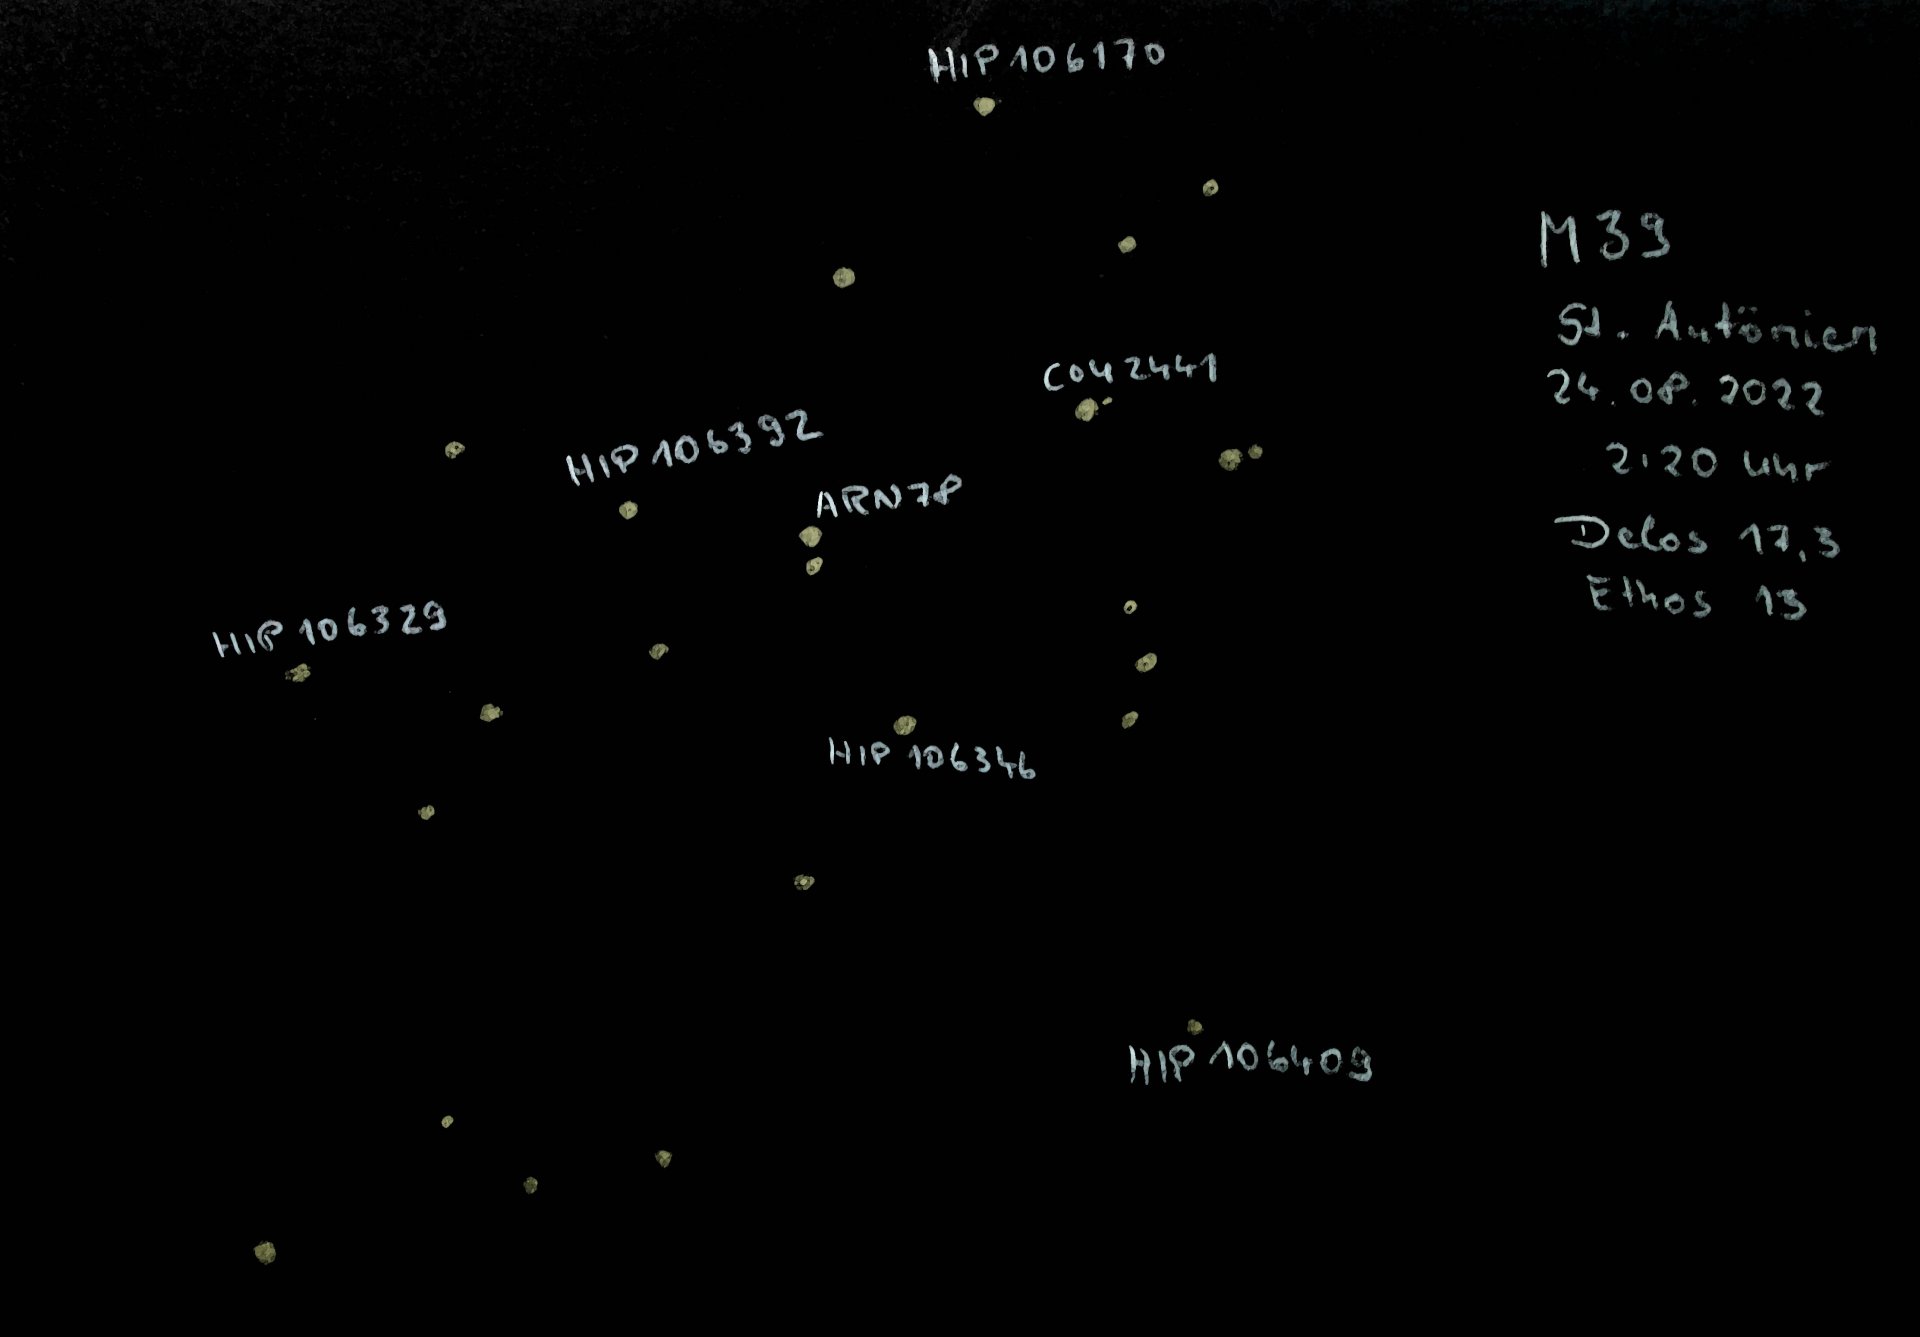 HIP 106170
M 39
St. Antönien
24.08.2022
2:20 Uhr
Delos 17,3
Ethos 13
COU 2441
HIP 106392
ARN 78
HIP 106329
HIP 106346
HIP 106409